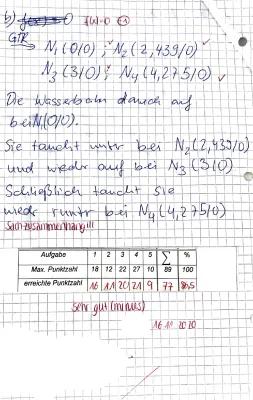 b) f(x)=0 f(x)=0
GTR N₁(0/0); N₂(2,439/0)
N₃(3/0); N₄(4,275/0)
Die Wasserbahn auf
bei N₁(0/0).
Sie taucht unter bei N₂(2,439/0)
und wieder auf bei N₃(3/0)
Schließlich taucht sie
wieder runter bei N₄(4,275/0)
Sachzusammenhang!!!
Aufgabe 1 2 3 4 5 Σ %
Max. Punktzahl 18 12 22 27 10 89 100
erreichte Punktzahl 16 11 20 21 9 77 86,5
sehr gut (minus)
16 11 2020